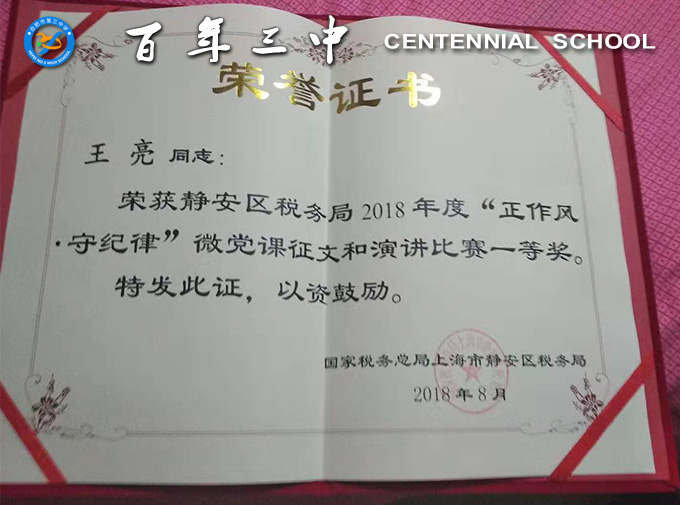 百年三中 CENTENNIAL SCHOOL
荣誉证书
王亮同志：
荣获静安区税务局2018年度“正作风
·守纪律”微党课征文和演讲比赛一等奖。
特发此证，以资鼓励。
国家税务总局上海市静安区税务局
2018年8月